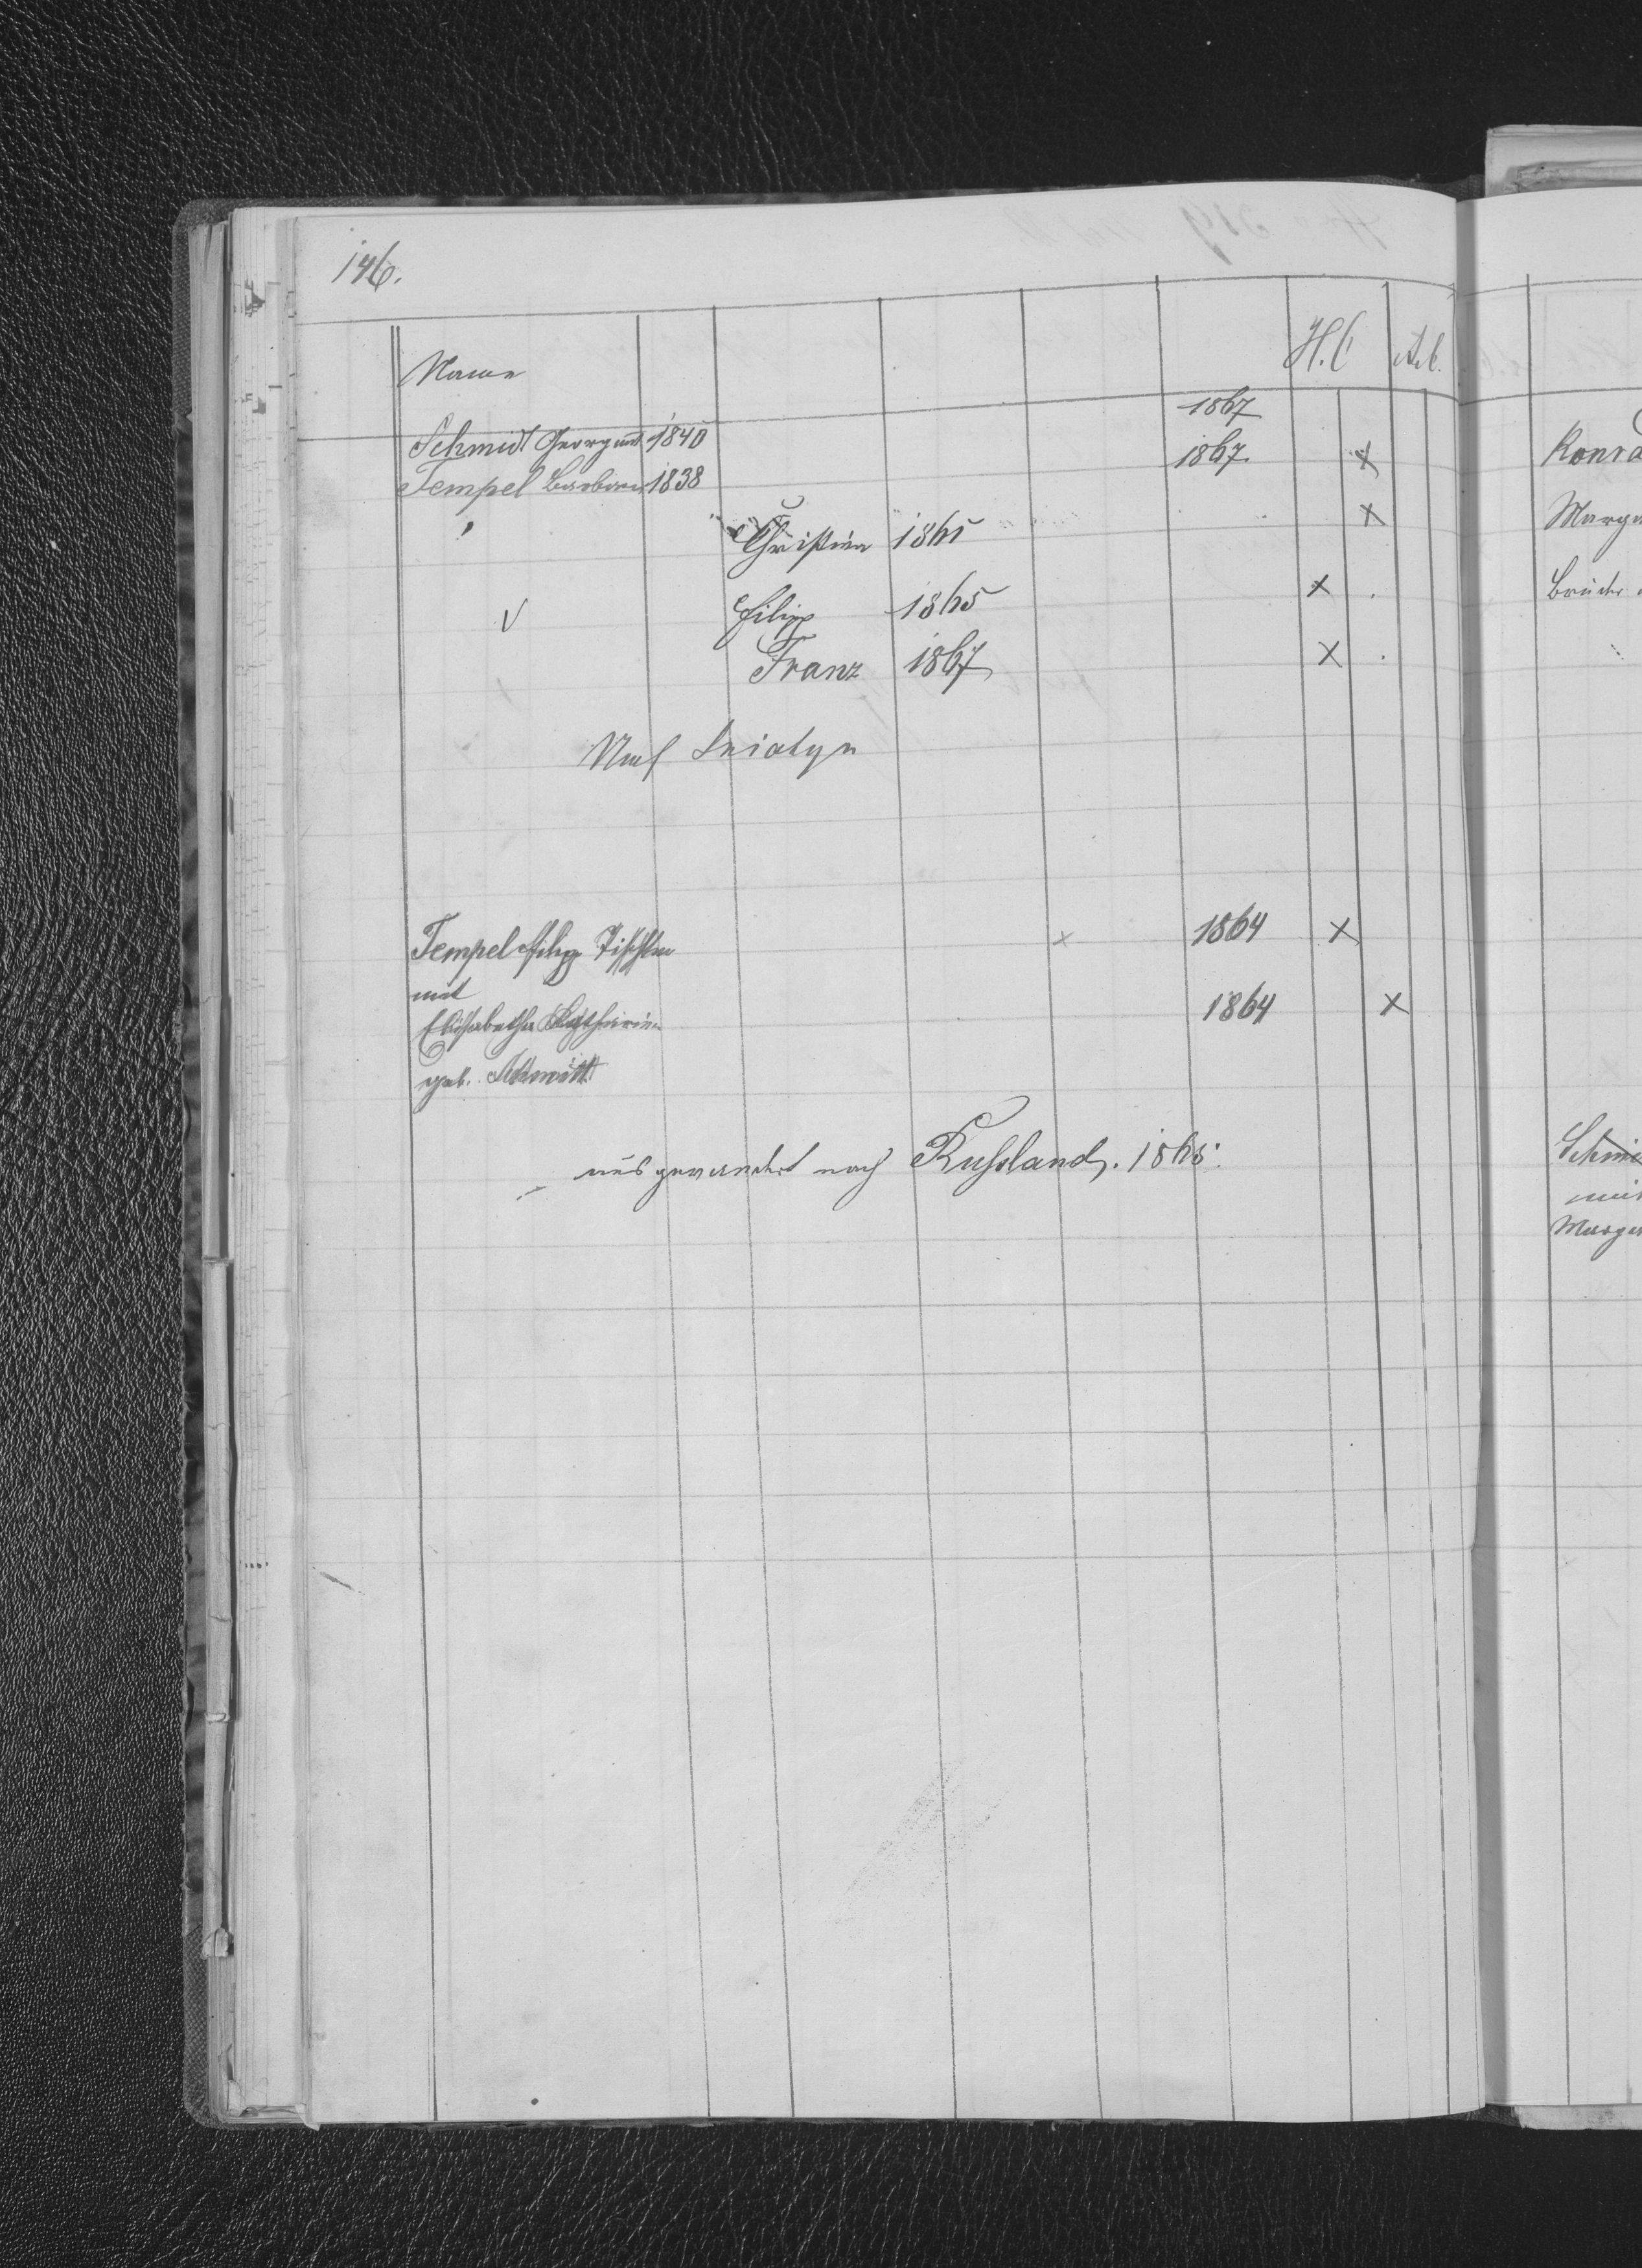 146.
Name H.C A.C.
1867
Schmidt Georg und 1840 1867 x
Tempel Barbara 1838
Christina 1865 x
√ Filipp 1865 x .
Franz 1867 x .
Sniatyn
Tempel Filipp Tischler x 1864 x
mit
Elisabetha Katharina 1864 x
geb. Schmidt
ausgewandert nach Russland. 1865.
Konra
Marga
Bruder
Schmi
mit
Margar